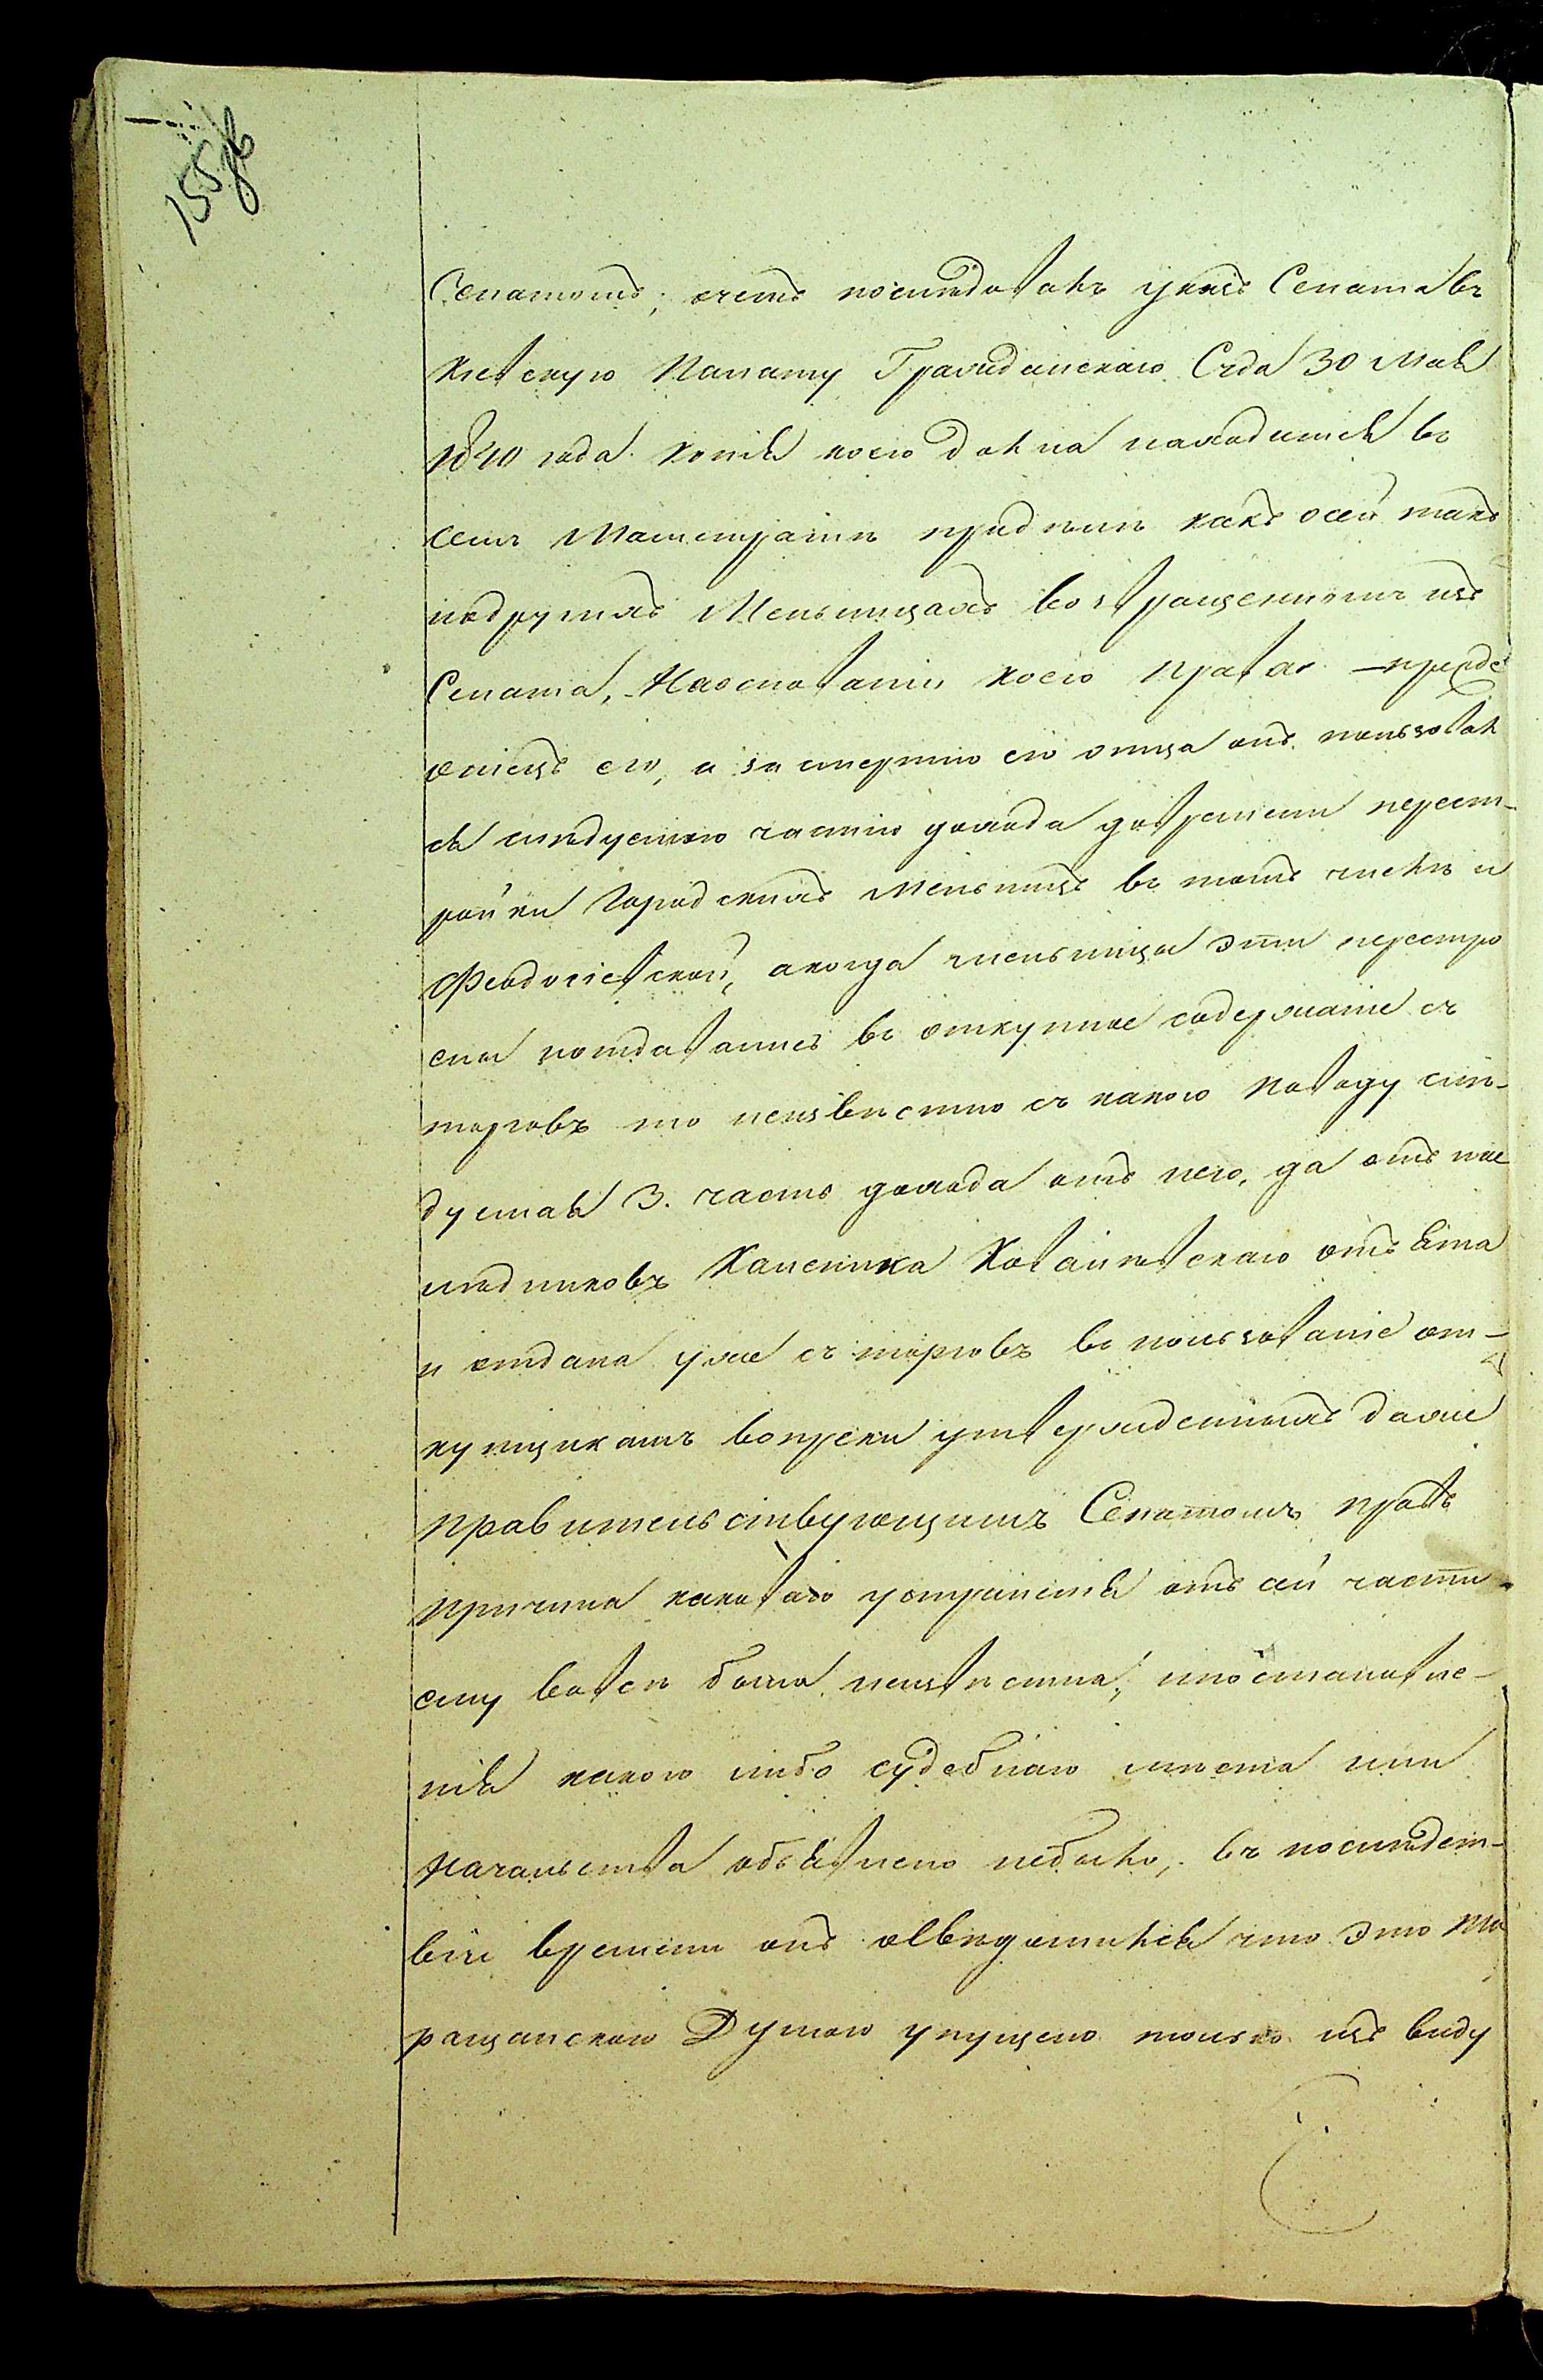 155 об
Сенатомъ; очемъ последовалъ указъ Сената въ
Кіевскую Палату Гражданскаго Суда 30 Мая
1840 года. копія коего должна находится въ
семъ Магистратѣ придѣлѣ какъ осей такъ
подругихъ Мельницахъ возвращенномъ изъ
Сената, Наоснованіи коего права прежде
отецъ его, а засмертію его отца онъ пользовал
ся слѣдуемою частію дохода довремени перест-
ройки Городскихъ Мельницъ въ томъ числѣ и
Феодосіевской, акогда мельницы эти перестро
ены поотдавались въ откупное содержаніе съ
торговъ то неизвѣстно съ какого Поводу слѣ-
дуемая 3. часть дохода отъ него, да отъ нас
лѣдниковъ Ксіенжа отъята
и отдана уже съ торговъ въ пользованіе от-
купщикамъ вопреки утвержденныхъ даже
правительствующимъ Сенатомъ правъ
причина каковаго устраненія отъ сей части
ему вовсе была неизвѣстна; ипостановле-
нія какого либо судебнаго мѣста или
Начальства объявлено небыло, въ последст-
віи времени онъ освѣдомился что это
ращанскою Думою упущено только изъ виду